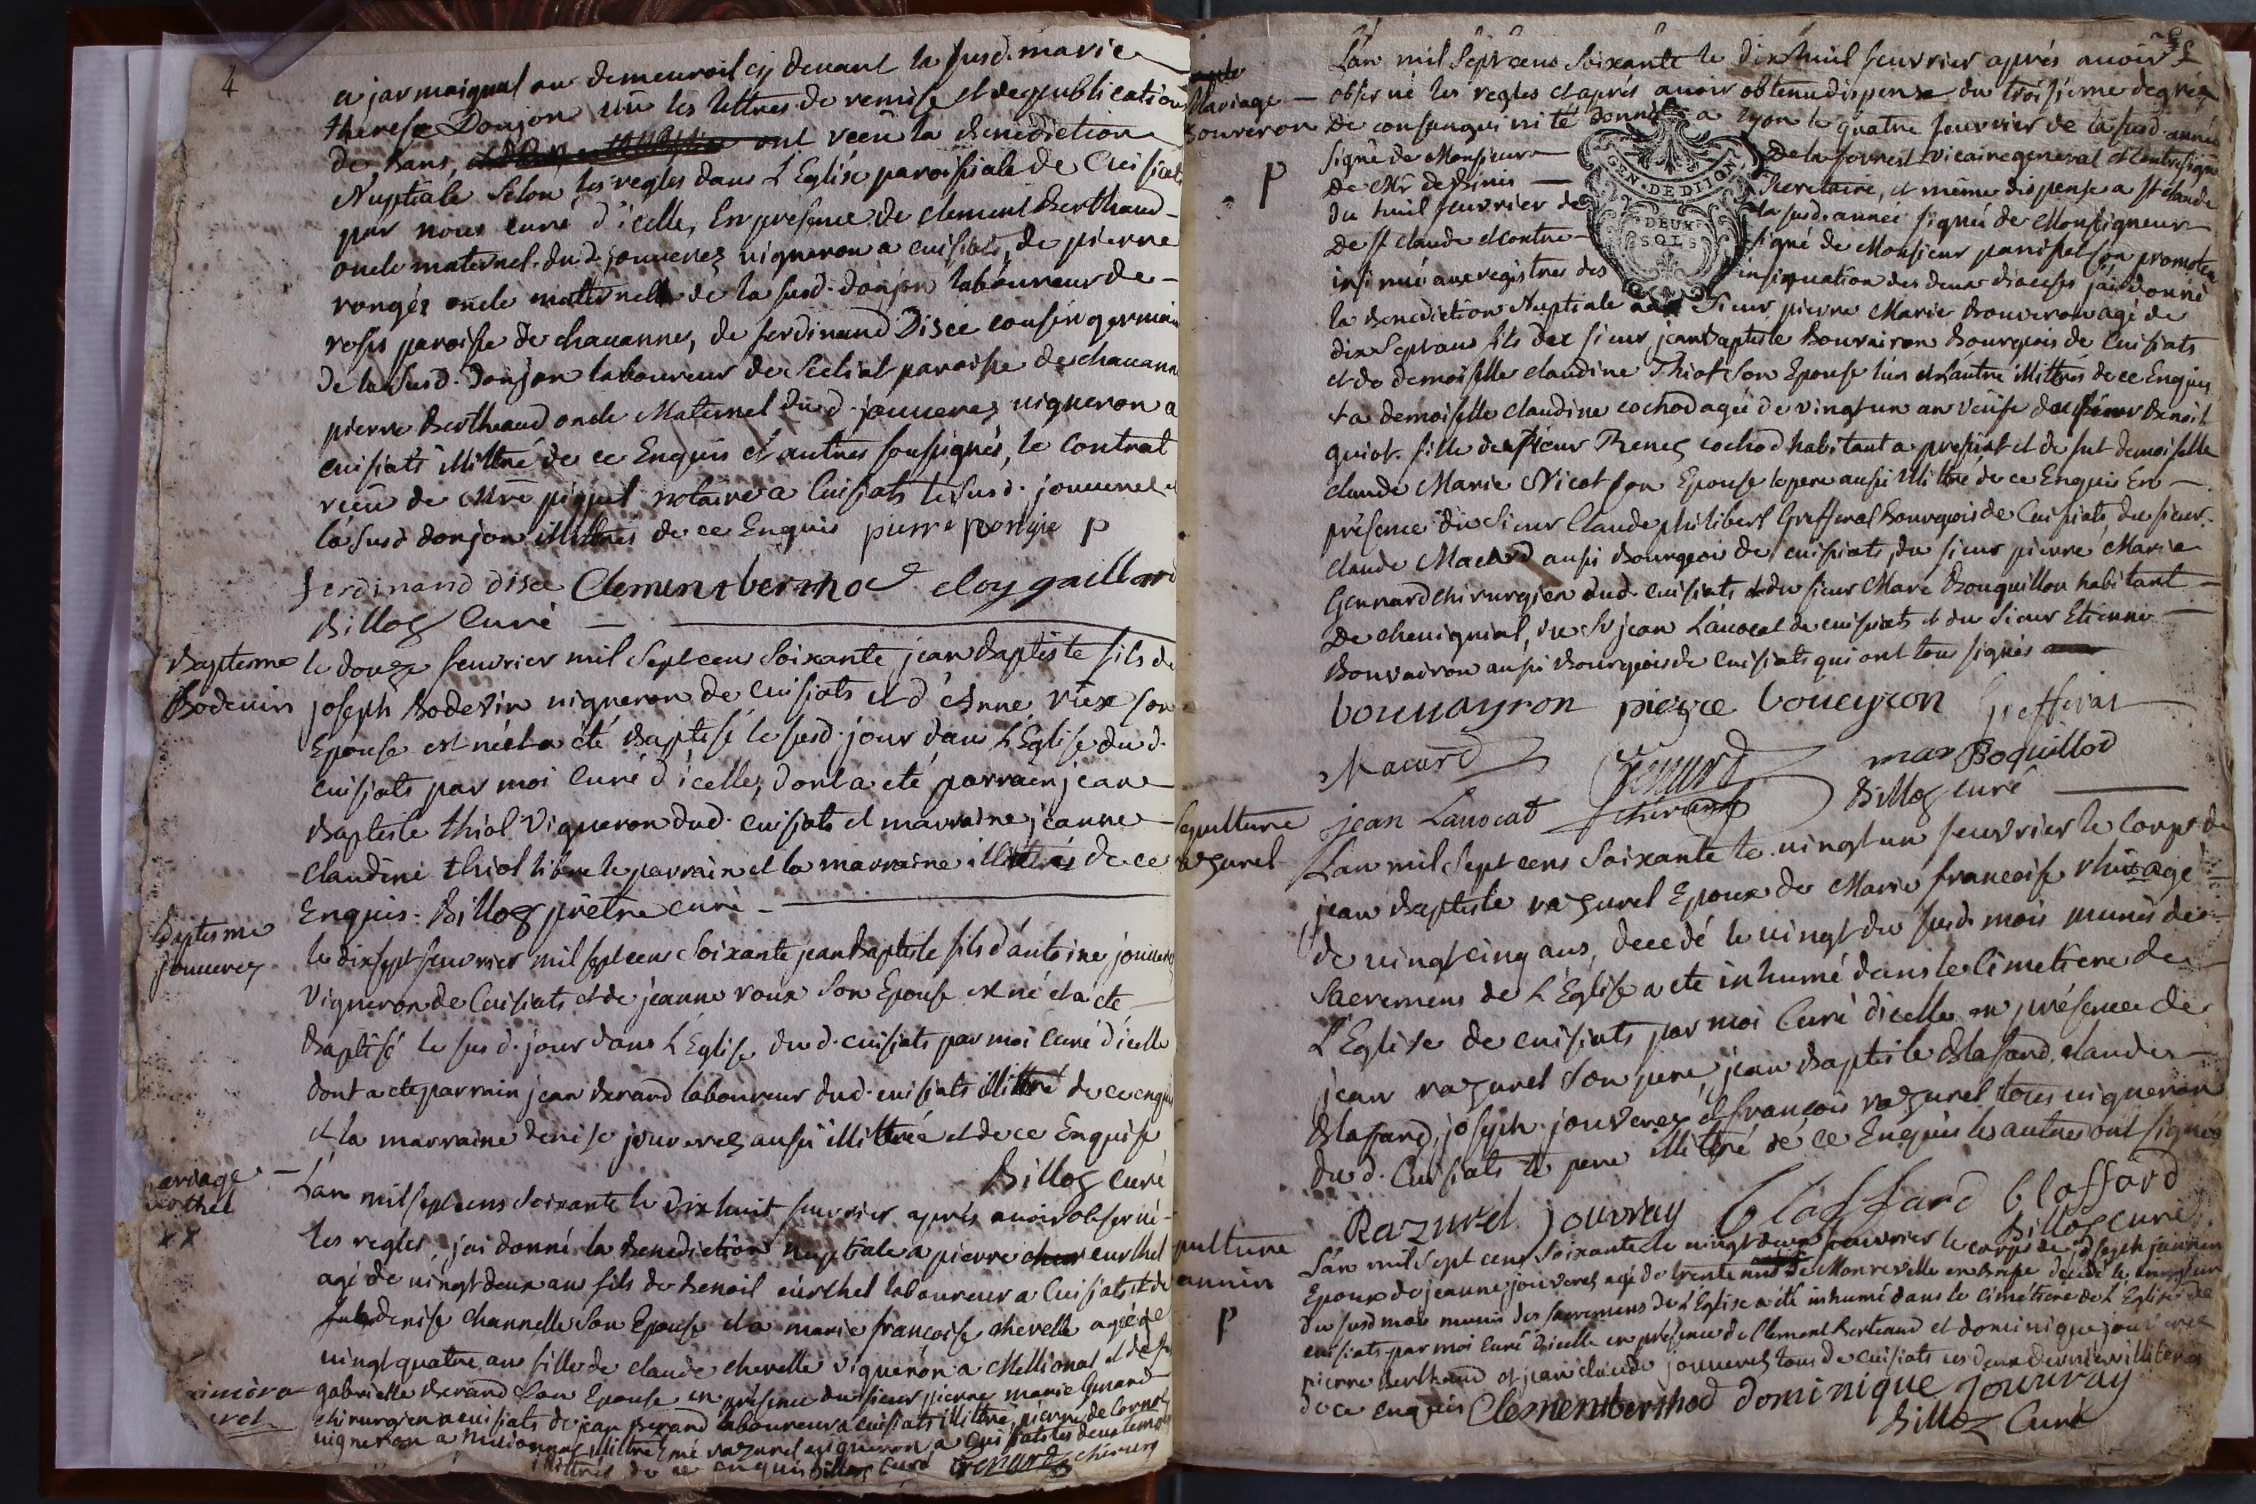 4
a jarmaignat ou demeuroit cy devant la susd. marie
therese Donjon vû les lettres de remise et de publication
de bans, ont reçû la Benediction
Nuptiale selon les regles dans L'Eglise paroissiale de Cuisiat
par nous curé d'icelle, En presence de clement Berthaud
oncle maternel dud. jouverez vigneron a cuisiats, de pierre
rongéz oncle maternel de la susd. donjon laboureur de
rosés paroisse de chavannes, de ferdinand Disce cousin germain
de la susd. Donjon laboureur de paroisse de chavann
pierre Berthaud oncle Maternel du d. jouverez vigneron a
cuisiats illittré de ce Enquis et autres soussignés, le contrat
reçû de Mre notaire a Cuisiats le susd. jouverez
la susd donjon illittrés de ce Enquis pierre P
ferdinand disce Clemen berthod eloy gaillard
Billoz Curé
Baptesme
Bodevin
le douze feuvrier mil sept cens soixante jean Baptiste fils de
joseph Bodevin vigneron de Cuisiats et d'Anne viex son
Epouse est né et a eté Baptisé le susd. jour dans L'Eglise dud.
cuisiats par moi Curé d'icelle, dont a eté parrain jean
Baptiste thiot vigneron dud. cuisiats et marraine jeanne
claudine thiot libre le parrain et la marraine illittrés de ce
Enquis. Billoz prêtre curé
Baptesme
Jouverez
le dix sept feuvrier mil sept cens soixante jean Baptiste fils d'antoine jouverez
vigneron de Cuisiats et de jeanne roux son Epouse est né et a eté
Baptisé le susd. jour dans L'Eglise dud. cuisiats par moi Curé d'icelle
dont a eté parrain jean Berard laboureur dud. cuisiats illittré de ce enquis
et la marraine denise jouverez aussi illittrée et de ce Enquise
Billoz curé
ariage
L'an mil sept cens soixante le dix huit feuvrier après avoir observé
les regles, jai donné la Benediction Nuptiale a pierre eurthel
agé de vingt deux ans fils de Benoit eurthel laboureur a Cuisiats et de
denise channelle son Epouse et a marie françoise chevelle agée de
vingt quatre ans fille de claude chevelle vigneron a Millionat et de
gabrielle Berard son Epouse en présence du sieur pierre marie Genard
chirurgien a cuisiats de jean Berard laboureur a cuisiats illittré, pierre de
vigneron a illittré vazurel vigneron a Cuisiats les deux
illittrés de ce enquis Billoz Curé Genard chirurg
Mariage
Bouveron
P
L'an mil sept cens soixante le dix huit feuvrier après avoir
observé les regles et après avoir obtenu dispense du troisieme degrez
de consanguinité Donnée a Lyon le quatre feuvrier de la susd année
signé de Monsieur De la forrest vicaire general et contresigné
de Mr de Binis Secretaire, et même dispense a St Claude
du huit feuvrier de la susd. année signée de Monseigneur
de St Claude et contre signé de Monsieur son promoteur
insinué aux registres des insinuation des deux dioceses jai donné
GEN. DE DIJON
DEUX
SOLS
la Benediction Nuptiale a Sieur pierre Marie Bouveron agé de
dix Sept ans fils de sieur jean Baptiste Bouvairon Bourgeois de Cuisiats
et de demoiselle claudine Thiot son Epouse l'un et l'autre illittrés de ce Enquis
et a demoiselle claudine cochod agée de vingt un an veuve de sieur Benoit
quiot fille de sieur Renez cochod habitant a presiat et de fut demoiselle
claude Marie Nicot son Epouse le pere aussi illittré de ce Enquis En
présence du sieur Claude philibert Greffenat Bourgeois de Cuisiats, du sieur
claude Macard aussi Bourgeois de cuisiats, du sieur pierre Marie
Gennard chirurgien dud. cuisiats et du sieur Marc Bouquillon habitant
de chevignial, du Sr jean Lavocat de cuisiats et du sieur Etienne
Bouvairon aussi Bourgeois de Cuisiats qui ont tous signés
bouvayron pierre boueyron
Macard Genard marc Boquillod
jean Lavocat chirurg Billoz curé
sepulture
razurel
L'an mil sept cens soixante le vingt un feuvrier le corps de
jean Baptiste razurel Epoux de Marie francoise agé
de vingt cinq ans, decedé le vingt du susd. mois munis des
sacremens de L'Eglise a eté inhumé dans le Cimetiere de
L'Eglise de cuisiats par moi Curé d'icelle en présence de
jean razurel son pere, jean Baptiste Blafard, claude
Blafard, joseph jouverez et françois razurel tous vigneron
dud. Cuisiats le pere illittré de ce Enquis les autres ont signés
Razurel jouvray blaffard blaffard
Billoz curé
pulture
annin
P
L'an mil sept cens soixante le vingt deux feuvrier le corps de joseph jannin
Epoux de jeanne jouverez agé de trente ans de Monrevelle en Bresse decedé le vingt un
du susd mois munis des sacremens de L'Eglise a eté inhumé dans le cimétiere de L'Eglise de
cuisiats par moi Curé d'icelle en présence de Clement Bertaud et dominique jouverez
pierre berthaud et jean claude jouverez tous de cuisiats ces deux derniers illitrés
de ce enquis Clemen berthod dominique jouvray
Billoz Curé